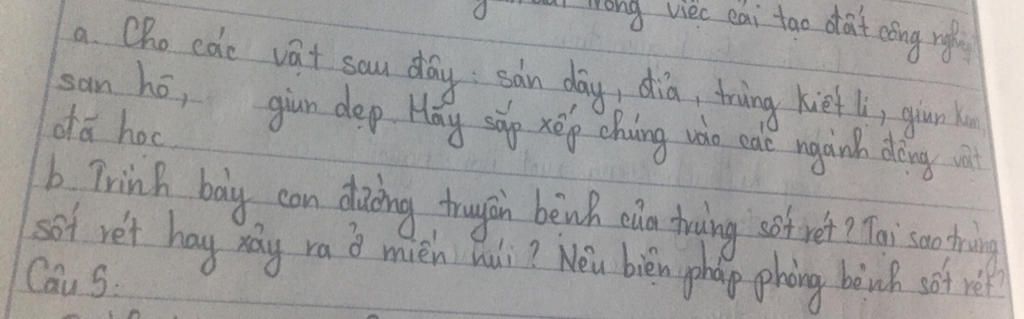 trong việc cải tạo đất công nghiệp
a. Cho các vật sau đây: sán dây, đỉa, trùng kiết lị, giun kim,
san hô, giun dẹp. Hãy sắp xếp chúng vào các ngành động vật
đã học.
b. Trình bày con đường truyền bệnh của trùng sốt rét? Tại sao trùng
sốt rét hay xảy ra ở miền núi? Nêu biện pháp phòng bệnh sốt rét?
Câu 5: